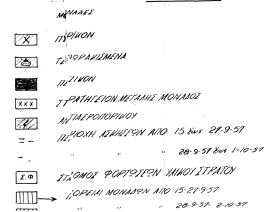 ΜΟΝΑΔΕΣ
X ΠΕΖΙΚΟΝ
ΤΕΘΩΡΑΚΙΣΜΕΝΑ
ΠΕΖΙΚΟΝ
xxx ΣΤΡΑΤΗΓΕΙΟΝ ΜΕΓΑΛΗΣ ΜΟΝΑΔΟΣ
ΑΝΤΙΑΕΡΟΠΟΡΙΚΟΝ
ΠΕΡΙΟΧΗ ΑΣΚΗΣΕΩΝ ΑΠΟ 15 ἕως 27-9-57
" " 28-9-57 ἕως 1-10-57
Σ.Φ ΣΤΑΘΜΟΣ ΦΟΡΤΩΣΕΩΝ ΥΛΙΚΟΥ ΣΤΡΑΤΟΥ
ΠΟΡΕΙΑΙ ΜΟΝΑΔΩΝ ΑΠΟ 15-27-9-57
" " " 28-9-57 2-10-57